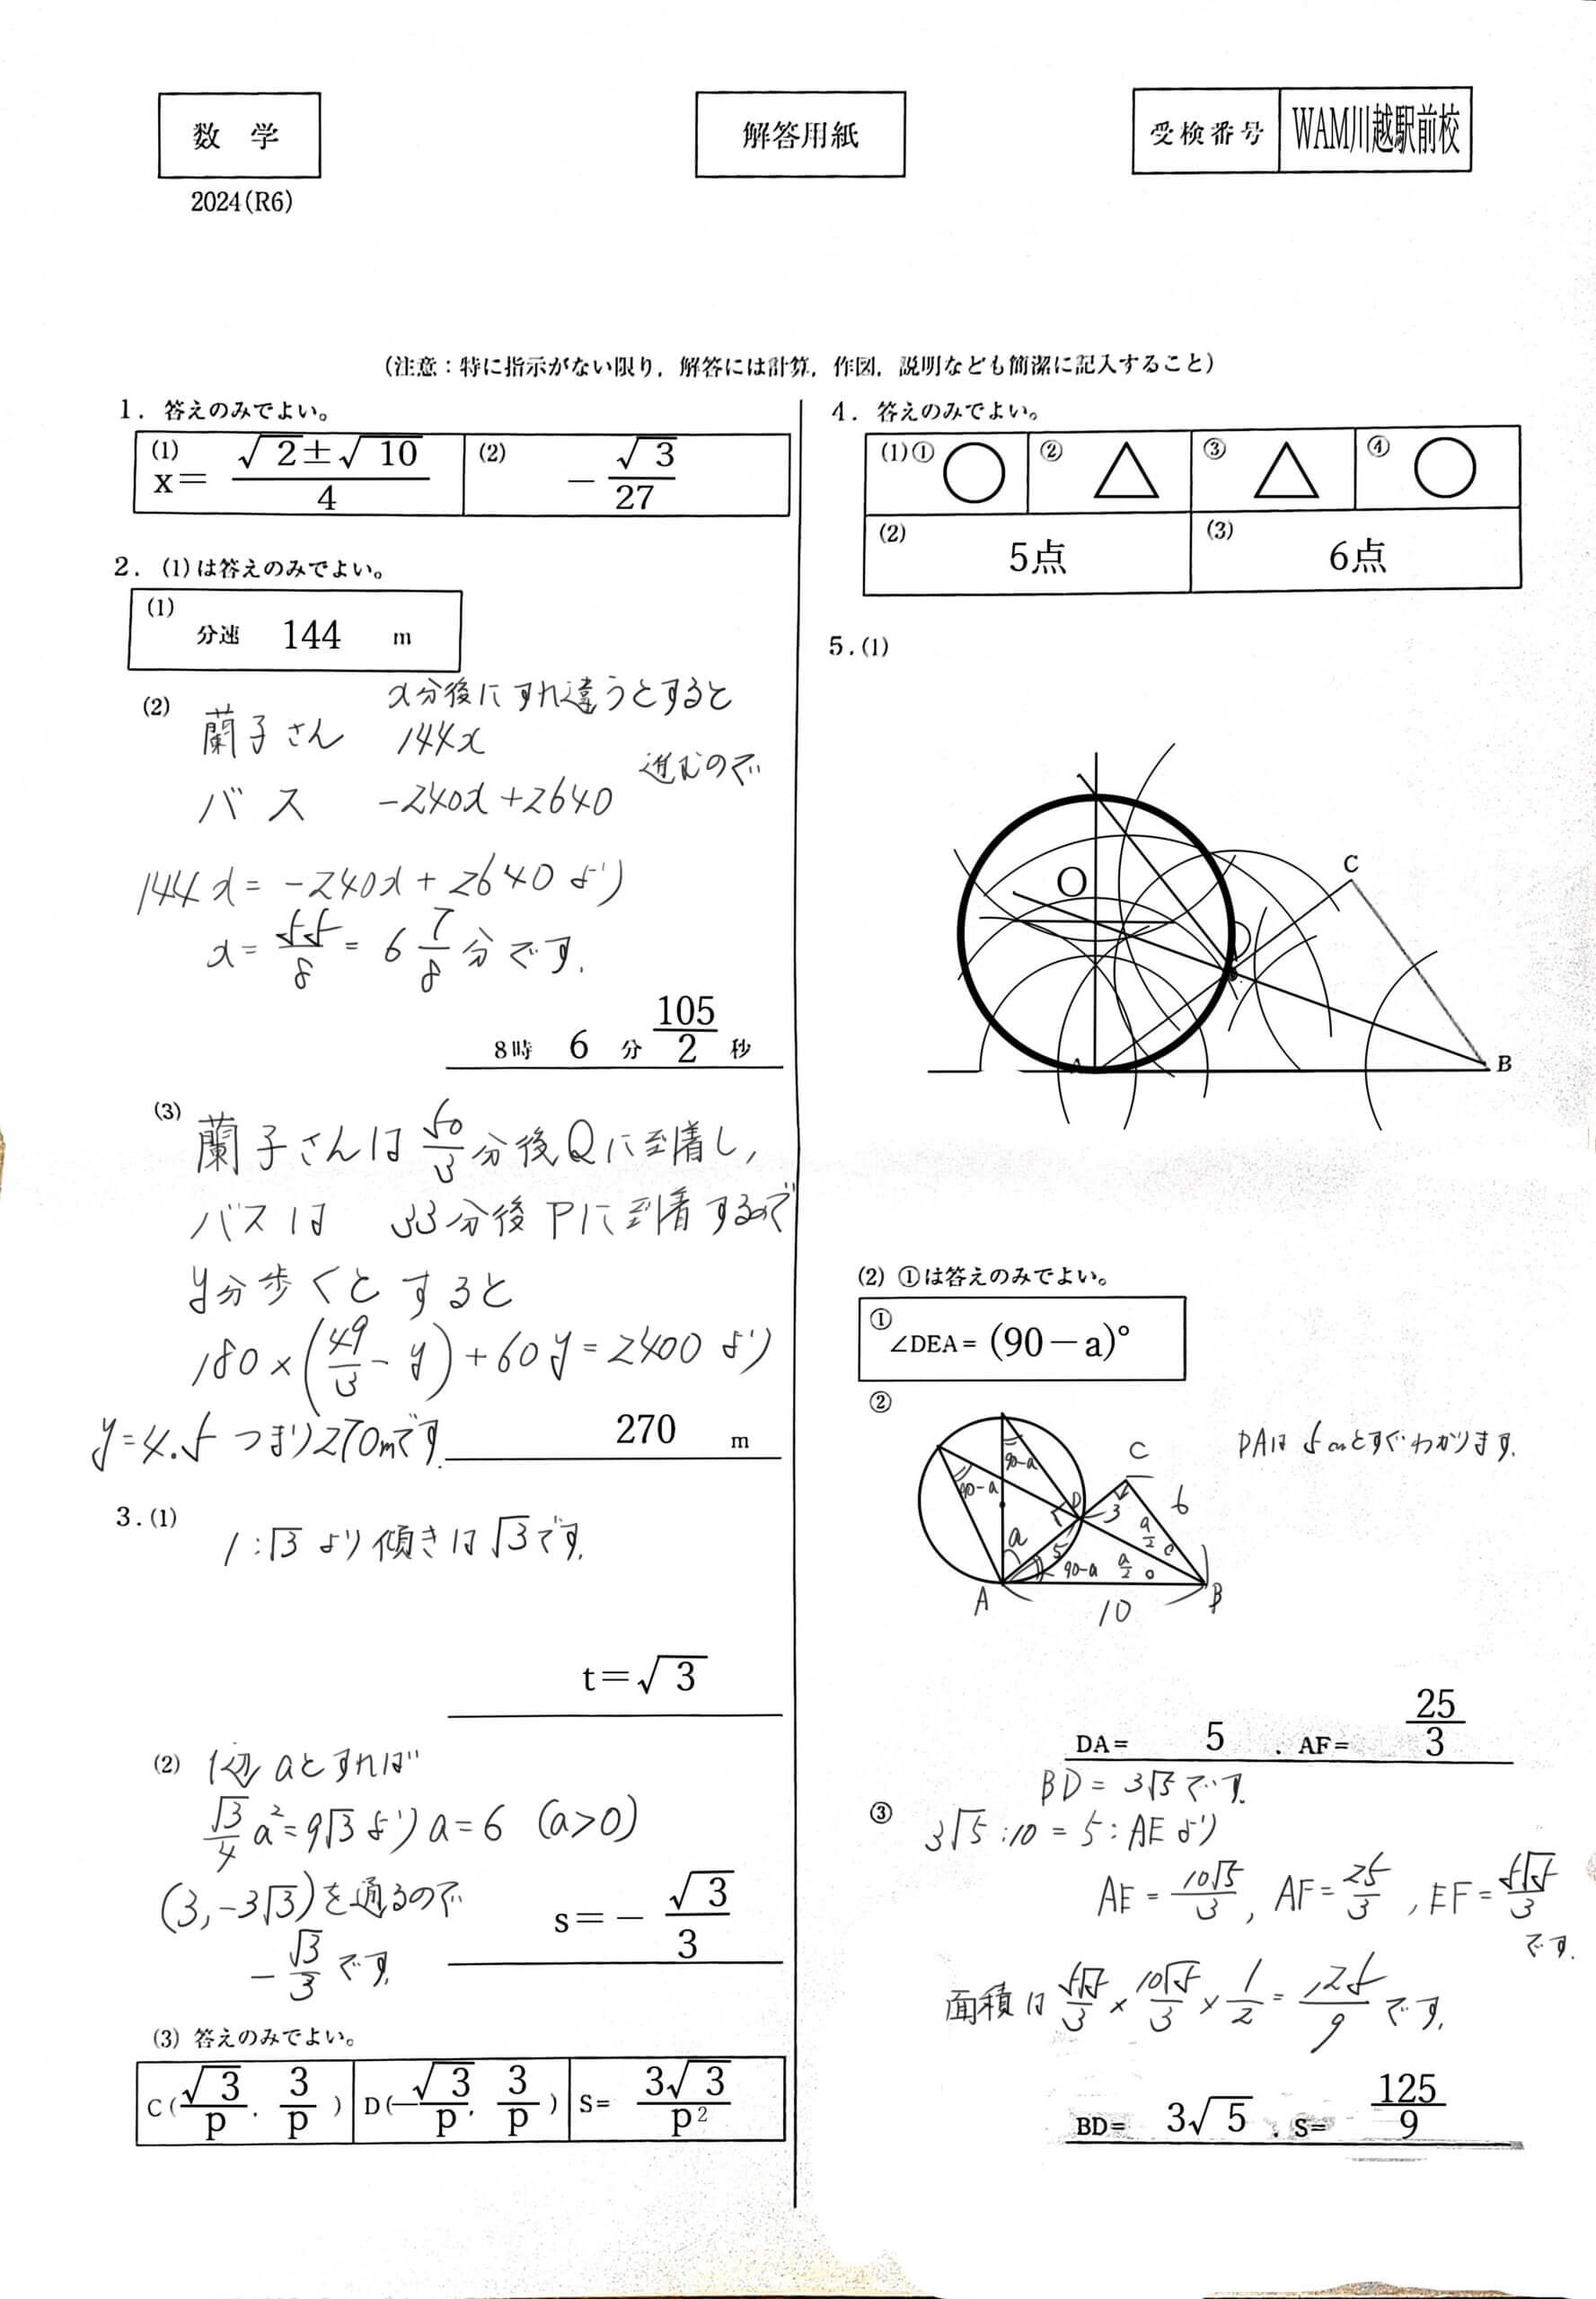 数 学
解答用紙
受検番号 WAM川越駅前校
2024(R6)
(注意：特に指示がない限り，解答には計算，作図，説明なども簡潔に記入すること)
1. 答えのみでよい。
(1) x= (√2±√10)/4
(2) −√3/27
2. (1)は答えのみでよい。
(1) 分速 144 m
(2) x分後にすれ違うとすると
蘭子さん 144x
バス −240x+2640 進むので
144x=−240x+2640より
x=55/8=6 7/8分です.
8時 6 分 105/2 秒
(3) 蘭子さんは50/3分後Qに到着し,
バスは 33分後Pに到着するので
y分歩くとすると
180×(49/3−y)+60y=2400 より
y=4.5 つまり270mです.
270 m
3.(1) 1:√3より傾きは√3です.
t=√3
(2) 1辺aとすれば
√3/4 a²=9√3よりa=6 (a>0)
(3,−3√3)を通るので
−√3/3です.
s=−√3/3
(3) 答えのみでよい。
C(√3/p, 3/p) D(−√3/p, 3/p) S= 3√3/p²
4. 答えのみでよい。
(1)① ○ ② △ ③ △ ④ ○
(2) 5点
(3) 6点
5.(1)
O
C
D
A
B
(2) ①は答えのみでよい。
① ∠DEA=(90−a)°
②
DAは5cmとすぐわかります.
C
90−a
90−a
D
3
6
a
5
a/2
90−a
a/2
A
B
10
DA= 5 . AF= 25/3
BD=3√5です.
③ 3√5:10=5:AEより
AE=10√5/3, AF=25/3, EF=5√5/3
です.
面積は5√5/3×10√5/3×1/2=125/9です.
BD= 3√5 . S= 125/9